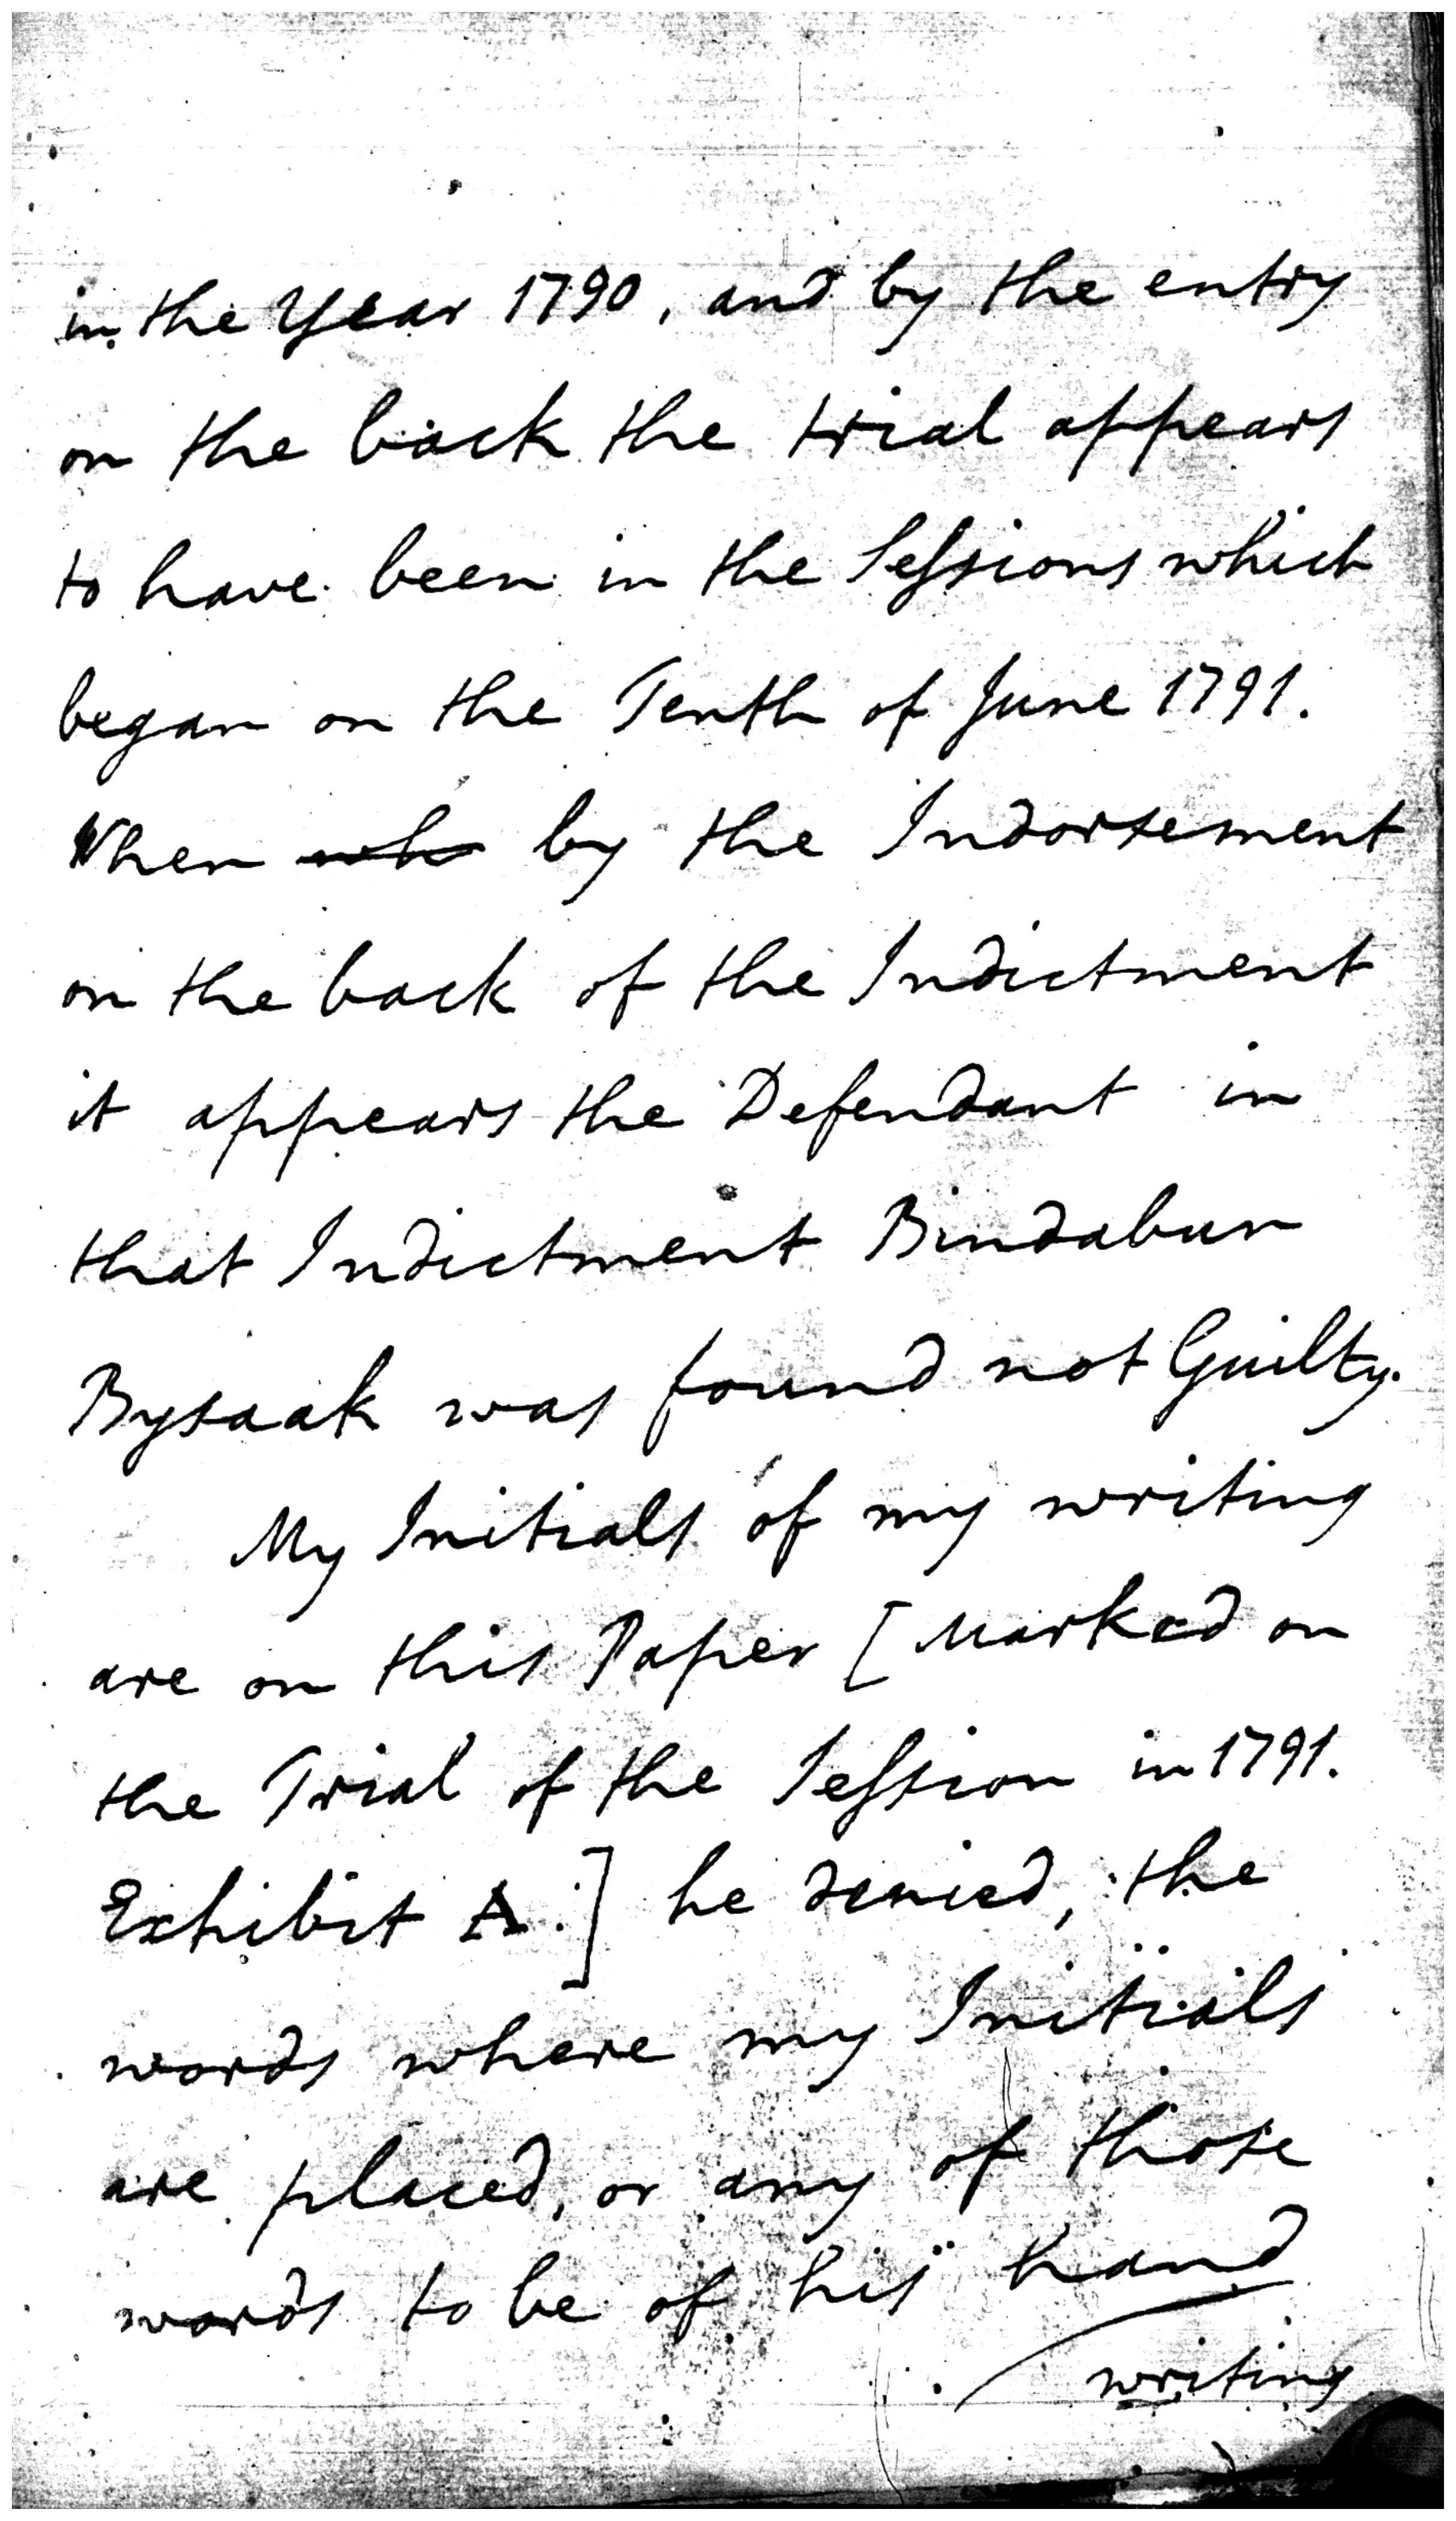 in the Year 1790, and by the entry
on the back the trial appears
to have been in the Sessions which
began on the Tenth of June 1791.
When wh by the Indorsement
on the back of the Indictment
it appears the Defendant in
that Indictment Bindabun
Bysaak was found not Guilty.
My Initials of my writing
are on this Paper [Marked on
the Trial of the Session in 1791.
Exhibit A.] he denied, the
words where my Initials
are placed, or any of those
words to be of his hand
writing